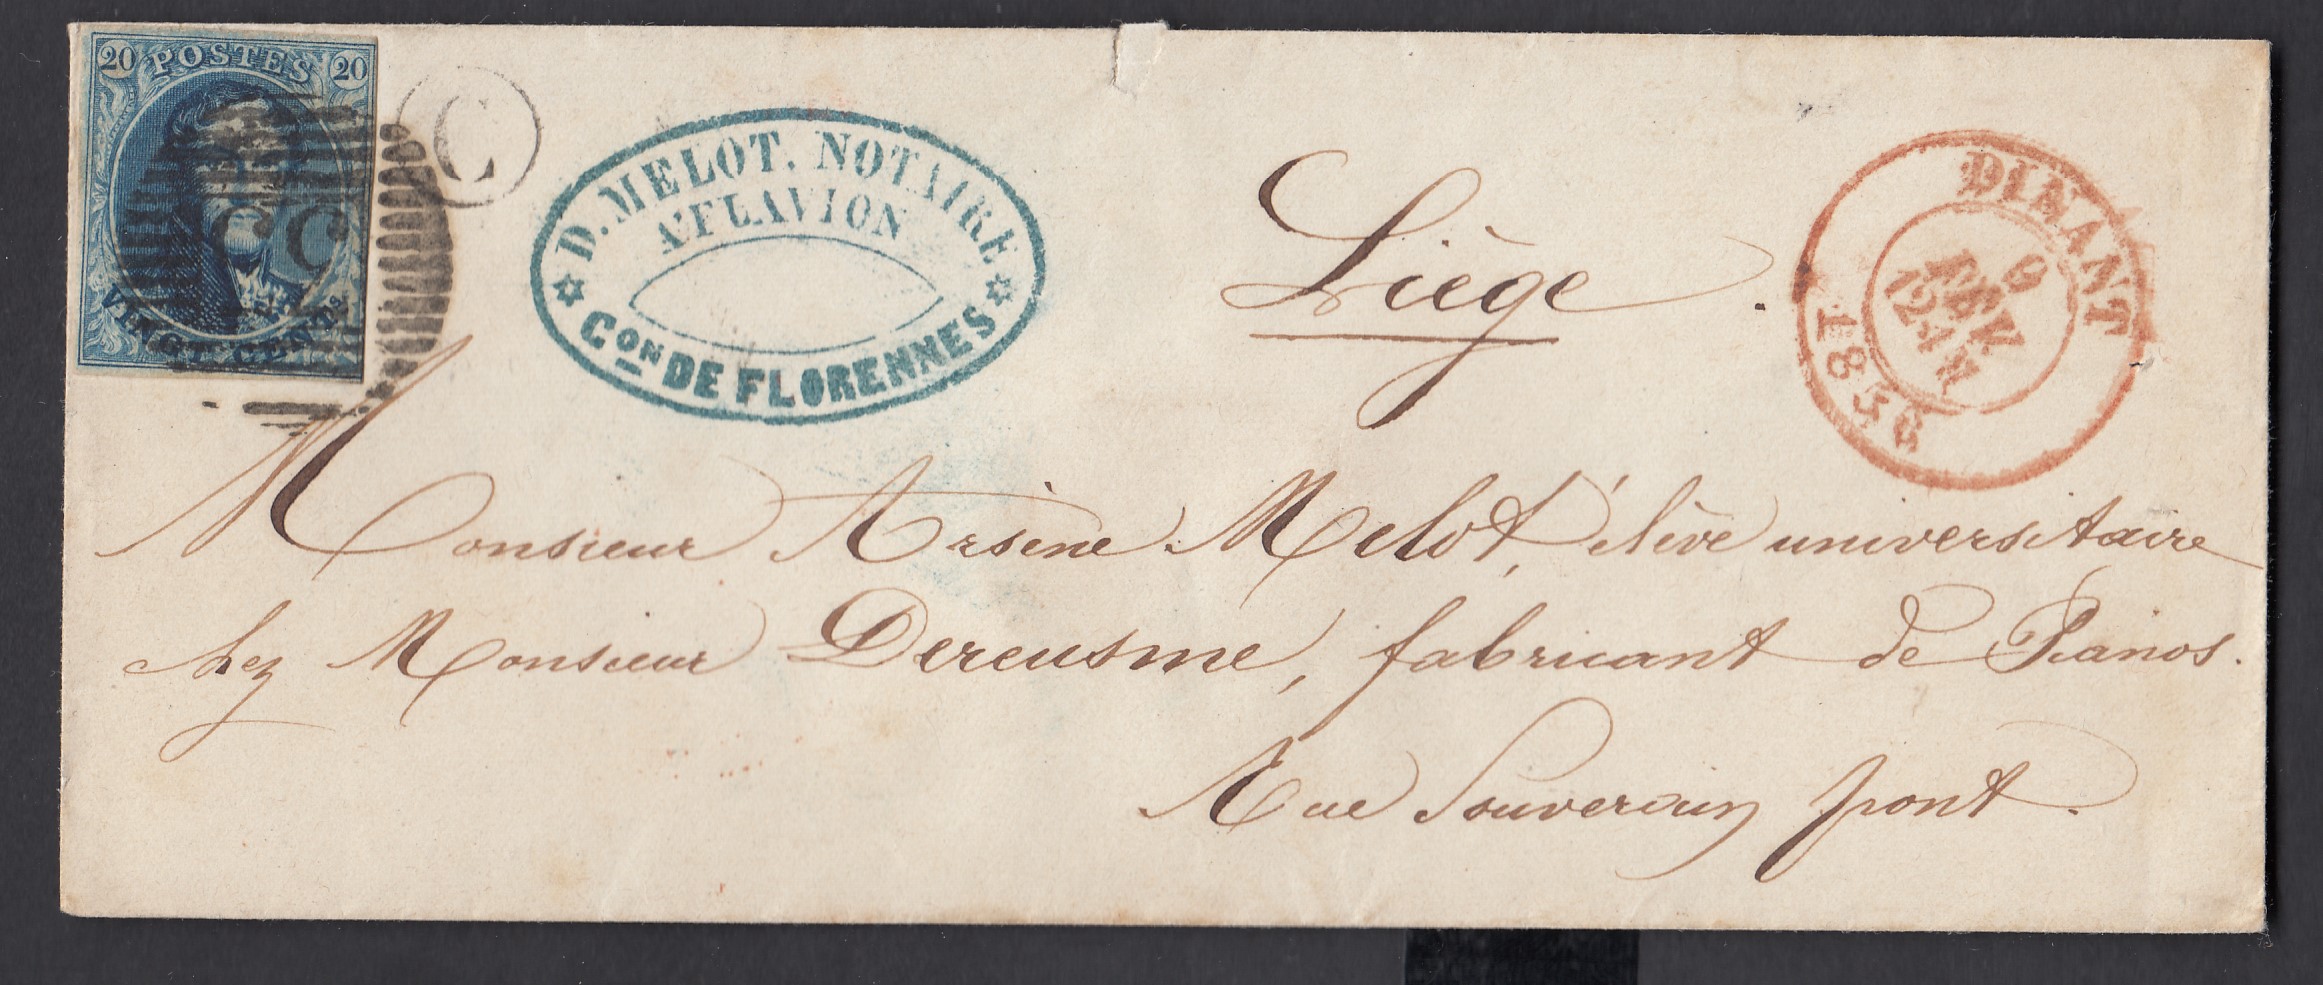 20 POSTES 20
VINGT CENTS
C
D. MELOT. NOTAIRE
A FLAVION
CON DE FLORENNES
Liège.
DINANT
9
FEV
12-1
1856
Monsieur Arsène Melot, élève universitaire
chez Monsieur Dereusme, fabricant de Pianos.
Rue Souverain pont.